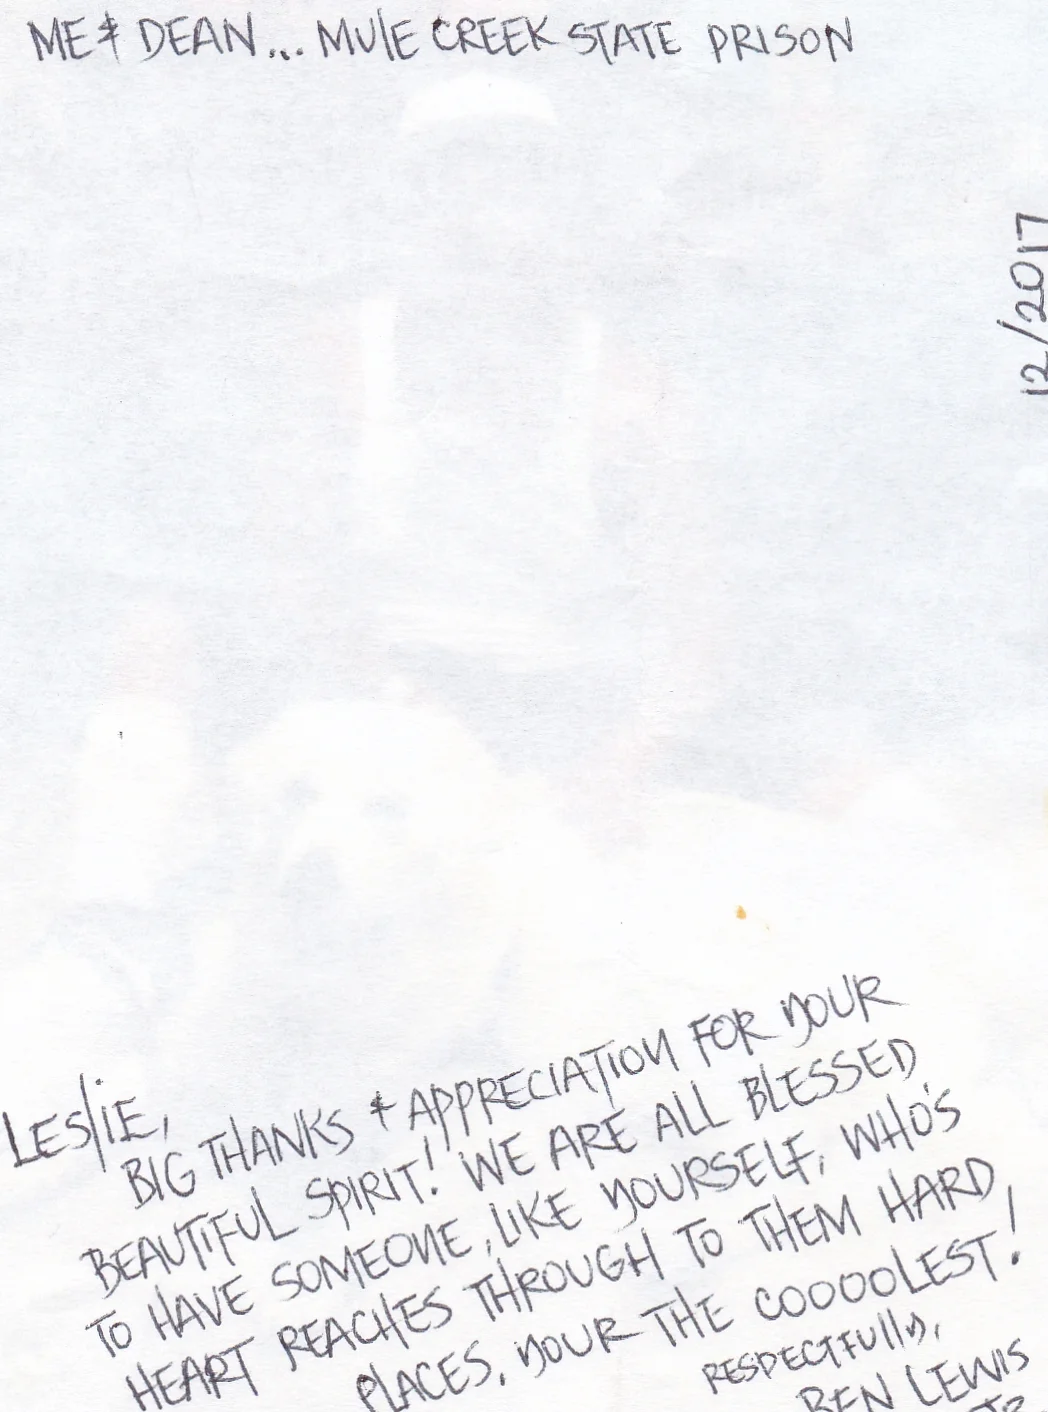 ME & DEAN... MULE CREEK STATE PRISON
12/2017
LESLIE,
BIG THANKS & APPRECIATION FOR YOUR
BEAUTIFUL SPIRIT! WE ARE ALL BLESSED
TO HAVE SOMEONE, LIKE YOURSELF, WHO'S
HEART REACHES THROUGH TO THEM HARD
PLACES, YOUR THE COOOOLEST!
RESPECTFULLY,
BEN LEWIS
JR.